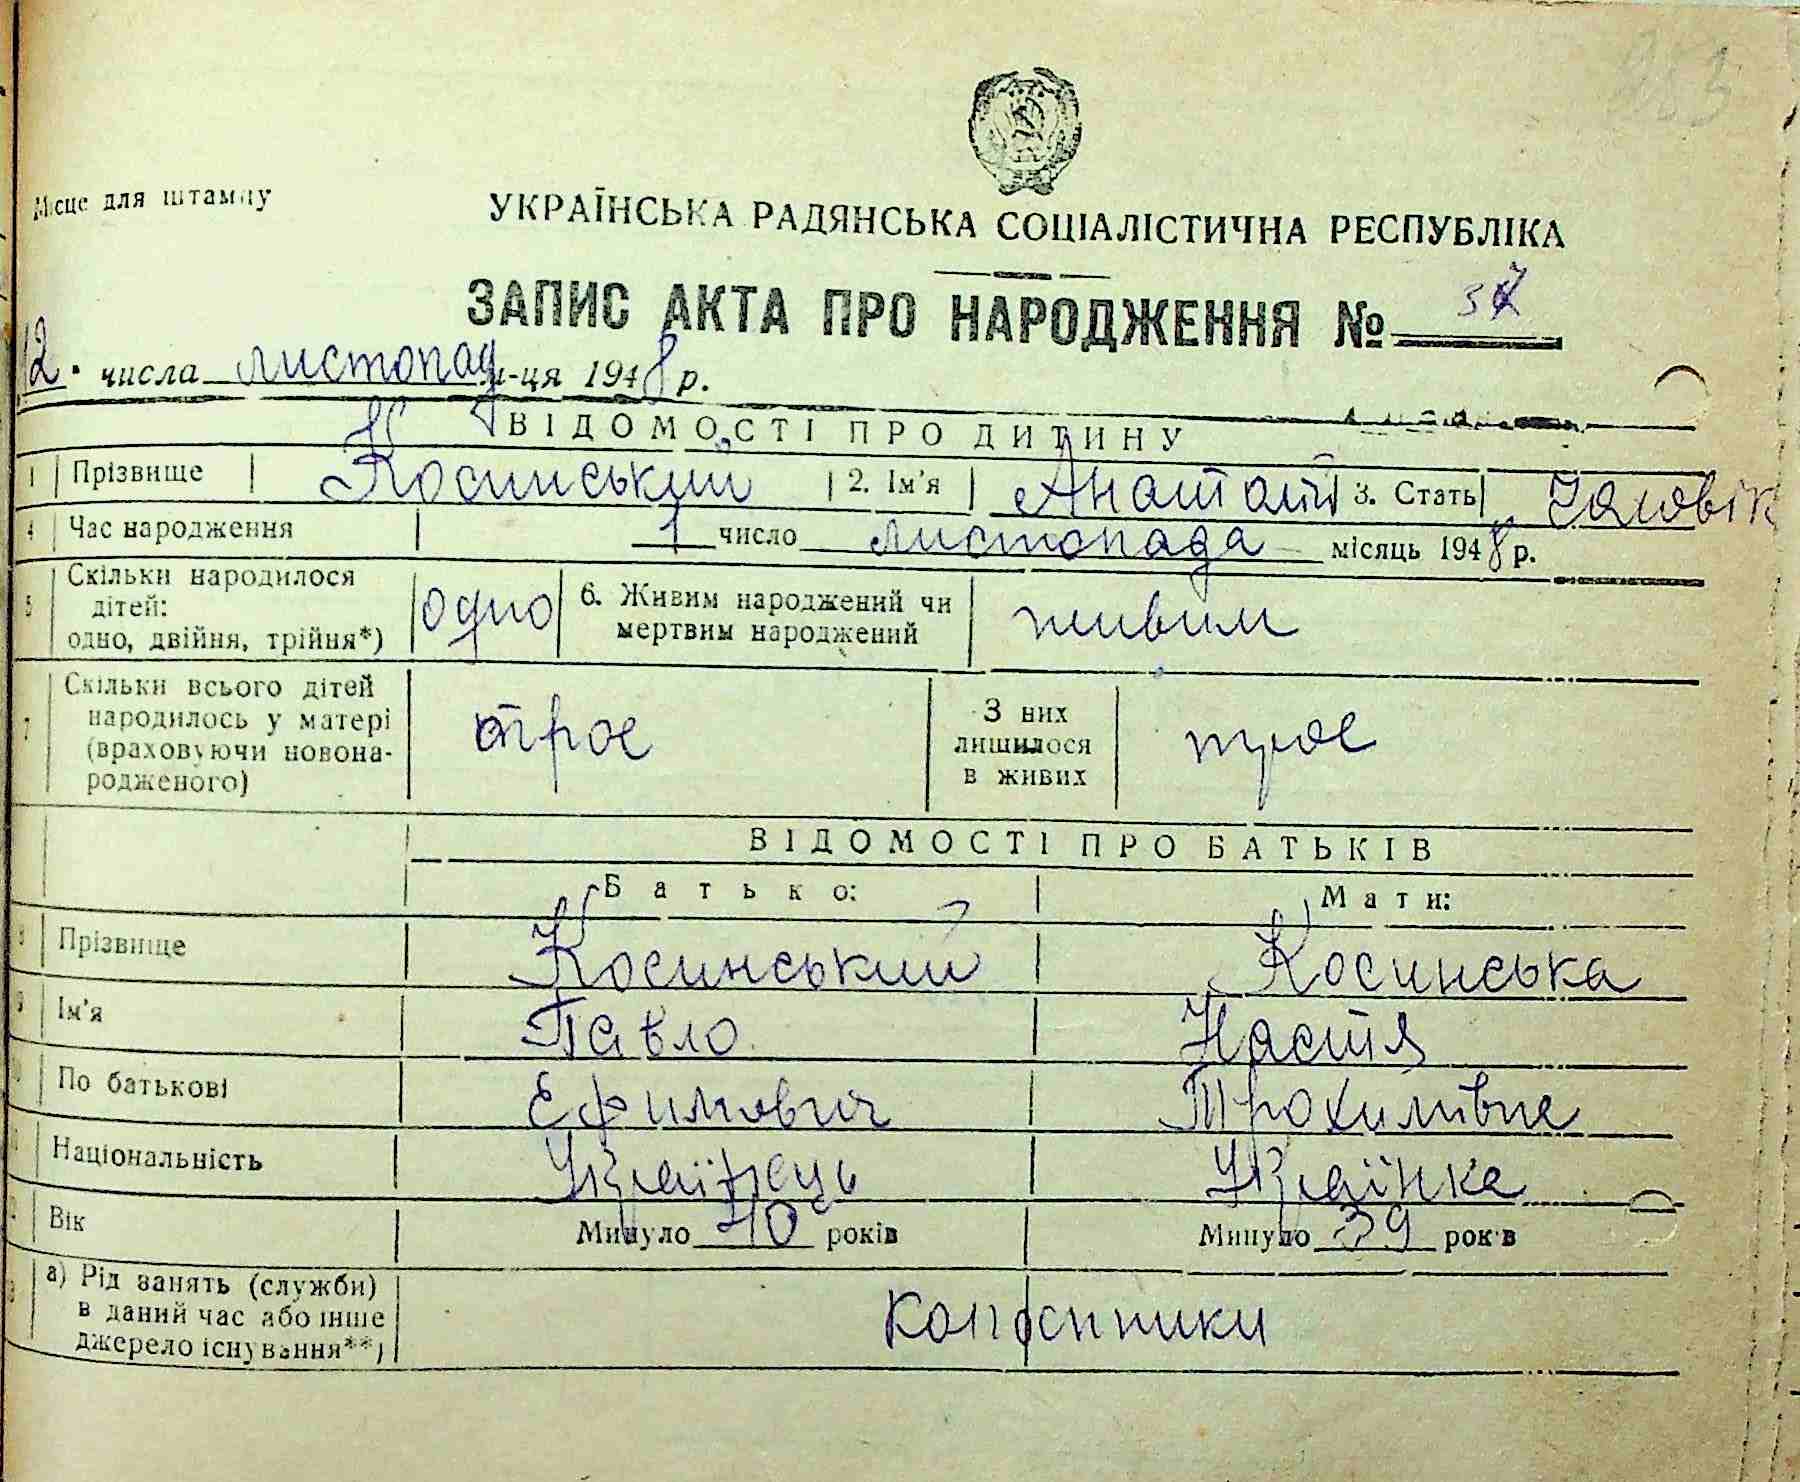 253
Місце для штампу
УКРАЇНСЬКА РАДЯНСЬКА СОЦІАЛІСТИЧНА РЕСПУБЛІКА
ЗАПИС АКТА ПРО НАРОДЖЕННЯ № 37
12. числа листопад м-ця 1948 р.
ВІДОМОСТІ ПРО ДИТИНУ
1 Прізвище Косинський 2. Ім'я Анатолій 3. Стать Чоловік
4 Час народження 1 число листопада місяць 1948 р.
5 Скільки народилося дітей: одно, двійня, трійня*) одно 6. Живим народжений чи мертвим народжений живим
7 Скільки всього дітей народилось у матері (враховуючи новонародженого) троє З них лишилося в живих троє
ВІДОМОСТІ ПРО БАТЬКІВ
Батько: Мати:
8 Прізвище Косинський Косинська
9 Ім'я Павло Настя
По батькові Ефимович Трохимівна
Національність Українець Українка
Вік Минуло 40 років Минуло 39 років
а) Рід занять (служби) в даний час або інше джерело існування**) колгоспники